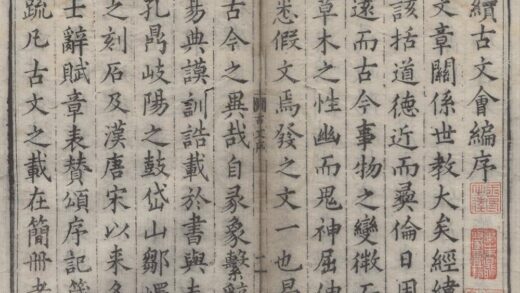 續古文會編序
文章關係世教大矣經緯
該括道德近而彝倫日用
遠而古今事物之變微而
草木之性幽而鬼神屈伸
悉假文焉發之文一也曷
古今之異哉自彖象繫辭
易典謨訓誥載於書與夫
孔鼎岐陽之鼓岱山鄒嶧
之刻石及漢唐宋以來名
士辭賦章表贊頌序記箴
疏凡古文之載在簡冊者